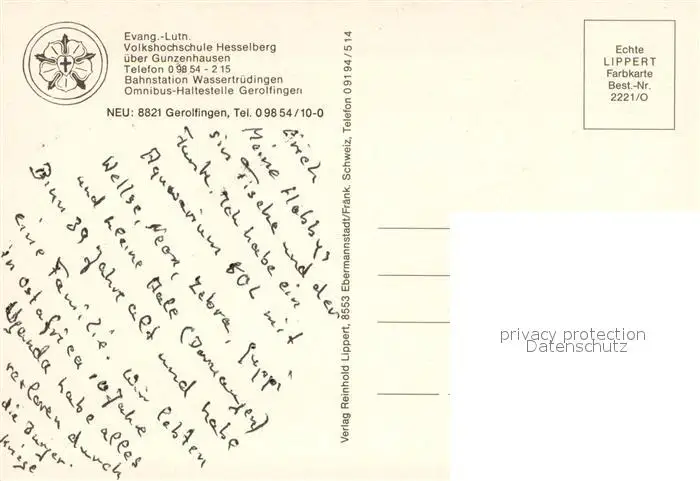 Evang.-Luth.
Volkshochschule Hesselberg
über Gunzenhausen
Telefon 0 98 54 - 2 15
Bahnstation Wassertrüdingen
Omnibus-Haltestelle Gerolfingen
NEU: 8821 Gerolfingen, Tel. 0 98 54 / 10-0
Erich
Meine Hobbys
sin Fische und der
Funk. Ich habe ein
Aquarium 80L mit
Wellse, Neon, Zebra, Guppi
und kleine Aale
Binn 39 Jahre alt und habe
eine Familie. Wir lebten
in Ostafrica 10 Jahre
Uganda habe alles
verloren durch
die Bürger.
kriege
Verlag Reinhold Lippert, 8553 Ebermannstadt/Fränk. Schweiz, Telefon 0 91 94 / 5 14
Echte
LIPPERT
Farbkarte
Best.-Nr.
2221/O
privacy protection
Datenschutz